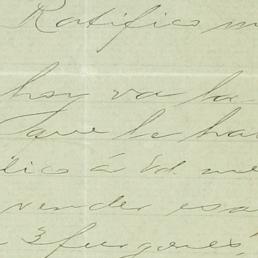 Ratifico m
hoy va la
le ha
dico á Vd. me
vender esa
3 furgones